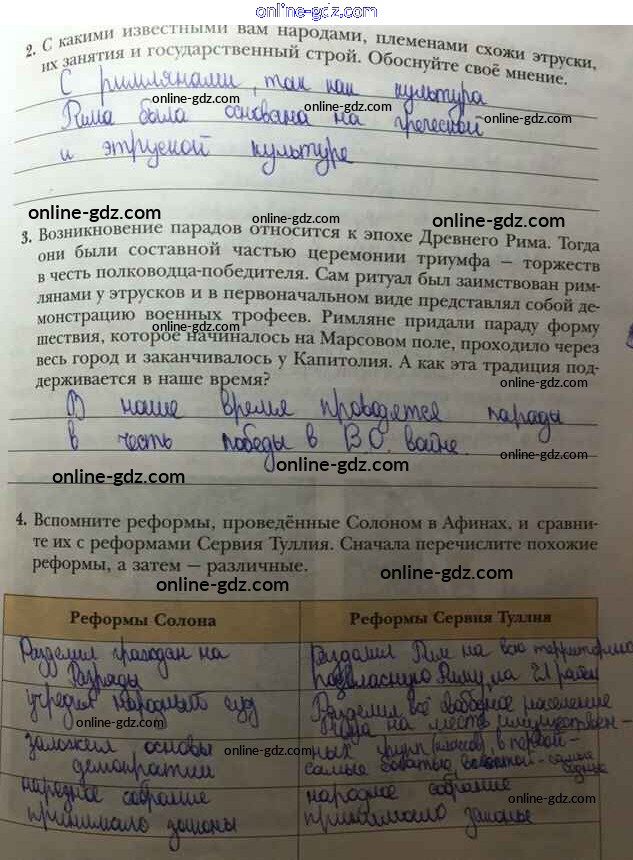 online-gdz.com
2. С какими известными вам народами, племенами схожи этруски,
их занятия и государственный строй. Обоснуйте своё мнение.
С римлянами, так как культура
online-gdz.com online-gdz.com
Рима была основана на греческой
online-gdz.com online-gdz.com
и этруской культуре
online-gdz.com
online-gdz.com online-gdz.com online-gdz.com
3. Возникновение парадов относится к эпохе Древнего Рима. Тогда
они были составной частью церемонии триумфа — торжеств
в честь полководца-победителя. Сам ритуал был заимствован рим-
лянами у этрусков и в первоначальном виде представлял собой де-
монстрацию военных трофеев. Римляне придали параду форму
online-gdz.com online-gdz.com
шествия, которое начиналось на Марсовом поле, проходило через
весь город и заканчивалось у Капитолия. А как эта традиция под-
держивается в наше время?
online-gdz.com
В наше время проводятся парады
в честь победы в В.О. войне.
online-gdz.com online-gdz.com
online-gdz.com
4. Вспомните реформы, проведённые Солоном в Афинах, и сравни-
те их с реформами Сервия Туллия. Сначала перечислите похожие
реформы, а затем — различные.
online-gdz.com online-gdz.com
Реформы Солона Реформы Сервия Туллия
Разделил граждан на
разряды
Рим на всю территорию
подвластную Риму, на 21 район
учредил народный суд
online-gdz.com
Разделил всё свободное население
на
заложил основы
демократии
online-gdz.com online-gdz.com
ных групп (классов), в первой -
самые богатые,
народное собрание
принимало законы
online-gdz.com
народное собрание
принимало законы
online-gdz.com